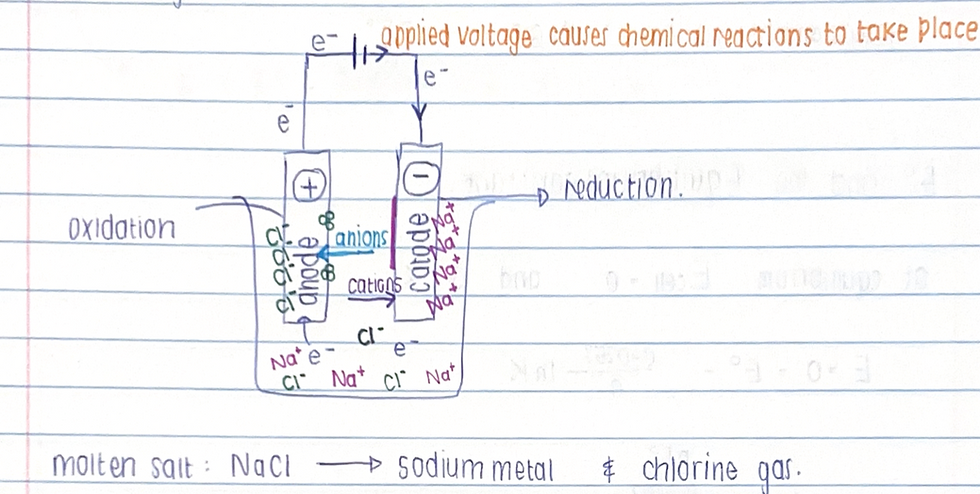 e⁻ applied voltage causes chemical reactions to take place
e⁻
e⁻
+ −
reduction.
oxidation
anode
catode
anions
cations
Cl⁻
Cl⁻
Cl⁻
Cl⁻
Na⁺
Na⁺
Na⁺
Na⁺
Cl⁻
Na⁺ e⁻ e⁻
Cl⁻ Na⁺ Cl⁻ Na⁺
molten salt : NaCl → sodium metal & chlorine gas.